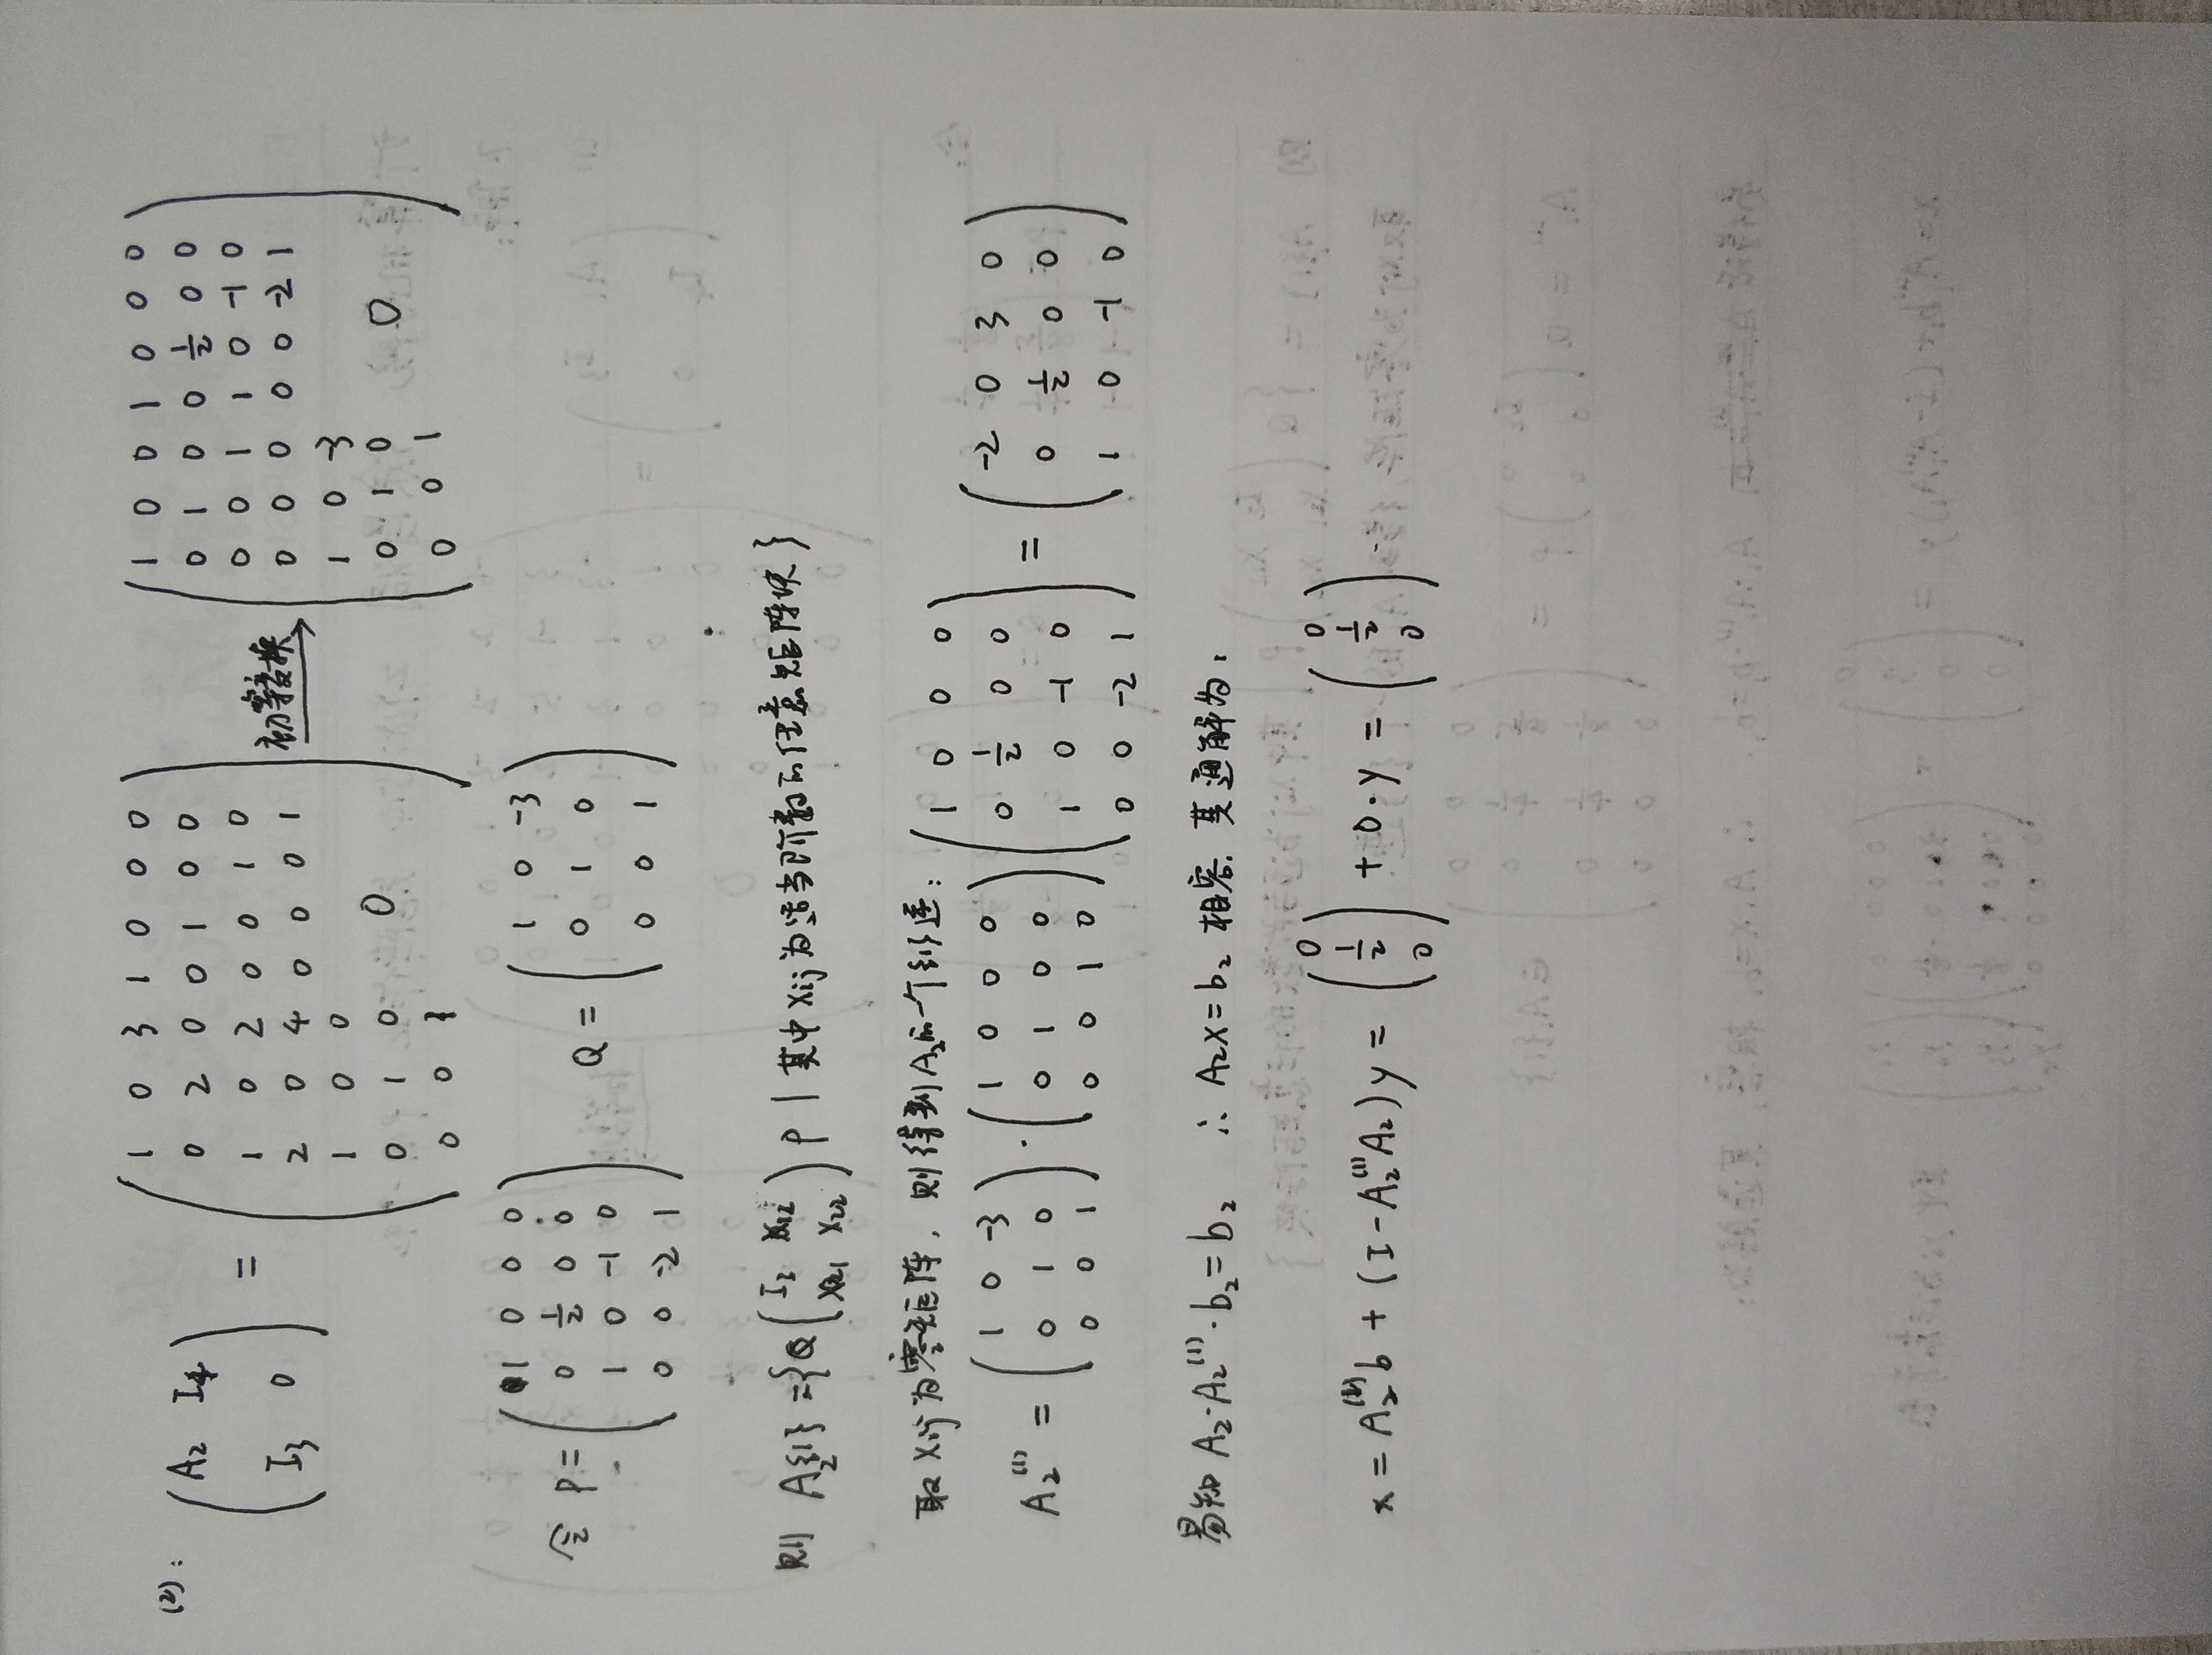 (2): ( A₂ I₄ ; I₃ 0 ) = ( 1 0 3 1 0 0 0 ; 0 2 0 0 1 0 0 ; 1 0 2 0 0 1 0 ; 2 0 4 0 0 0 1 ; 1 0 0 ; 0 1 0 0 ; 0 0 1 ) 初等变换 → ( 1 0 0 1 0 0 0 ; 0 1 0 0 1/2 0 0 ; 0 0 1 1 0 -1 0 ; 0 0 0 0 0 -2 1 ; 1 0 -3 ; 0 1 0 0 ; 0 0 1 )
令 P = ( 1 0 0 0 ; 0 1/2 0 0 ; 1 0 -1 0 ; 0 0 -2 1 ) Q = ( 1 0 -3 ; 0 1 0 ; 0 0 1 )
则 A₂{1} = {Q ( I₃ X₁₂ ; X₂₁ X₂₂ ) P | 其中 Xij 为适当阶数的任意矩阵块}
取 Xij 为零矩阵, 则得到 A₂的一个{1}逆:
A₂⁽¹⁾ = ( 1 0 -3 ; 0 1 0 ; 0 0 1 ) · ( 1 0 0 0 ; 0 1 0 0 ; 0 0 1 0 ) ( 1 0 0 0 ; 0 1/2 0 0 ; 1 0 -1 0 ; 0 0 -2 1 ) = ( -2 0 3 0 ; 0 1/2 0 0 ; 1 0 -1 0 )
易知 A₂·A₂⁽¹⁾·b₂ = b₂ ∴ A₂x = b₂ 相容. 其通解为:
x = A₂⁽¹⁾b + (I - A₂⁽¹⁾A₂)y = ( 0 ; 1/2 ; 0 ) + 0·y = ( 0 ; 1/2 ; 0 ).